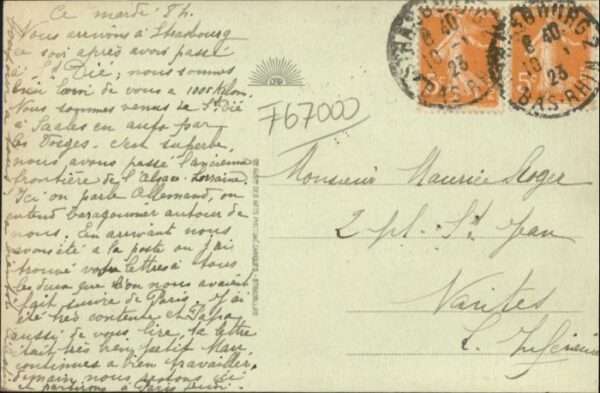 Ce mardi 8h.
Nous arrivons à Strasbourg
ce soir après avoir passé
à St Dié ; nous sommes
bien loin de vous a 1005 Kilom.
Nous sommes venus de St Dié
à Saales en auto par
les Vosges. c'est superbe,
nous avons passé l'ancienne
frontière de l'Alsace-Lorraine.
Ici on parle Allemand, on
entend baragouiner autour de
nous. En arrivant nous
avons été a la poste ou j'ai
trouvé votre lettres à tous
les deux que l'on nous avaient
fait suivre de Paris. J'ai
été très contente et Papa
aussi de vous lire, ta lettre
était très bien petit Mau,
continues a bien travailler,
demain nous restons ici
et partirons à Paris Jeudi.
F67000
STRASBOURG
8 40
10
23
BAS-RHIN
STRASBOURG
8 40
10
23
BAS-RHIN
Monsieur Maurice Roger
2 pl. St Jean
Nantes
L. Inférieure